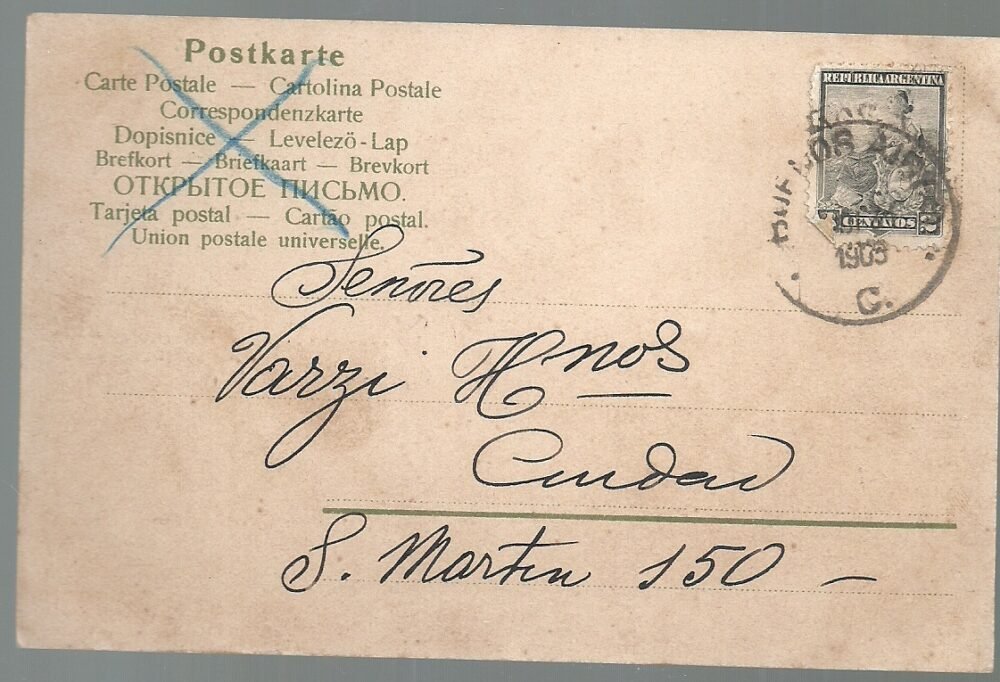 Postkarte
Carte Postale — Cartolina Postale
Correspondenzkarte
Dopisnice — Levelező-Lap
Brefkort — Briefkaart — Brevkort
ОТКРЫТОЕ ПИСЬМО.
Tarjeta postal — Cartão postal.
Union postale universelle.
REPUBLICA ARGENTINA
CENTAVOS
BUENOS AIRES
C.
Señores
Varzi Hnos
Ciudad
S. Martin 150 —